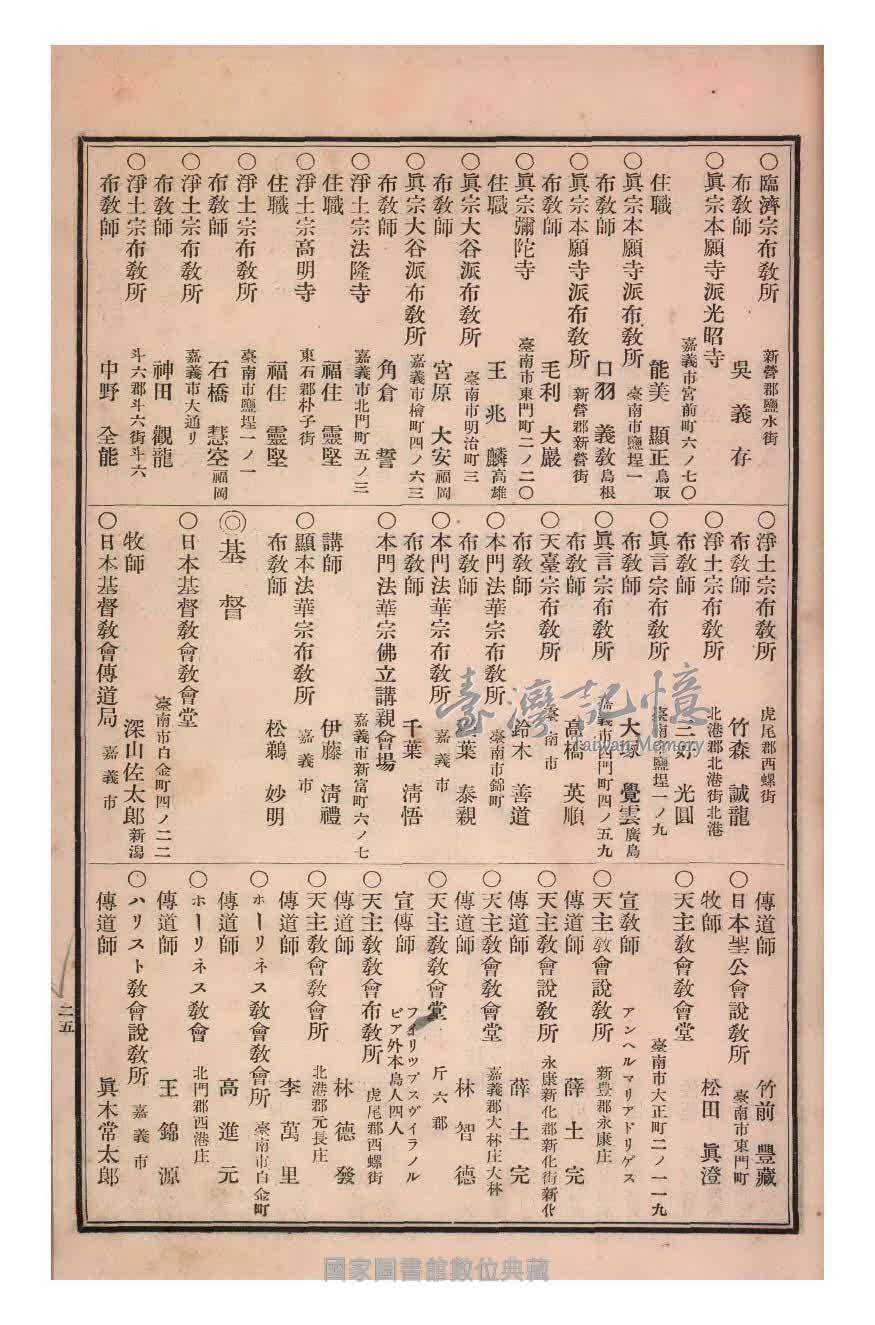 ○臨濟宗布敎所　新營郡鹽水街
布敎師　吳義存
○眞宗本願寺派光昭寺
嘉義市宮前町六ノ七〇
住職　能美顯正鳥取
○眞宗本願寺派布敎所　臺南市鹽埕一
布敎師　口羽義敎島根
○眞宗本願寺派布敎所　新營郡新營街
布敎師　毛利大巖
○眞宗彌陀寺　臺南市東門町二ノ二〇
住職　王兆麟高雄
○眞宗大谷派布敎所　臺南市明治町三
布敎師　宮原大安福岡
○眞宗大谷派布敎所　嘉義市檜町四ノ六三
布敎師　角倉誓
○淨土宗法隆寺　嘉義市北門町五ノ三
住職　福住靈堅
○淨土宗高明寺　東石郡朴子街
住職　福住靈堅
○淨土宗布敎所　臺南市鹽埕一ノ一
布敎師　石橋慧空福岡
○淨土宗布敎所　嘉義市大通リ
布敎師　神田觀龍
○淨土宗布敎所　斗六郡斗六街斗六
布敎師　中野全能
○淨土宗布敎所　虎尾郡西螺街
布敎師　竹森誠龍
○淨土宗布敎所　北港郡北港街北港
布敎師　三好光圓
○眞言宗布敎所　臺南市鹽埕一ノ九
布敎師　大塚覺雲廣島
○眞言宗布敎所　嘉義市西門町四ノ五九
布敎師　高橋英順
○天臺宗布敎所　臺南市
布敎師　鈴木善道
○本門法華宗布敎所　臺南市錦町
布敎師　葉泰親
○本門法華宗布敎所　嘉義市
布敎師　千葉淸悟
○本門法華宗佛立講親會場
嘉義市新富町六ノ七
講師　伊藤淸禮
○顯本法華宗布敎所　嘉義市
布敎師　松鵜妙明
◎基督
○日本基督敎會敎會堂
臺南市白金町四ノ二二
牧師　深山佐太郎新潟
○日本基督敎會傳道局　嘉義市
傳道師　竹前豐藏
○日本聖公會說敎所　臺南市東門町
牧師　松田眞澄
○天主敎會敎會堂
臺南市大正町二ノ一一九
宣敎師　アンヘルマリアドリゲス
○天主敎會說敎所　新豐郡永康庄
傳道師　薛土完
○天主敎會說敎所　永康新化郡新化街新化
傳道師　薛土完
○天主敎會敎會堂　嘉義郡大林庄大林
傳道師　林智德
○天主敎敎會堂　斤六郡
宣傳師　フィリツプスヴイラノルピア外本島人四人
○天主敎敎會布敎所　虎尾郡西螺街
傳道師　林德發
○天主敎會敎會所　北港郡元長庄
傳道師　李萬里
○ホーリネス敎會敎會所　臺南市白金町
傳道師　高進元
○ホーリネス敎會　北門郡西港庄
傳道師　王錦源
○ハリスト敎會說敎所　嘉義市
傳道師　眞木常太郎
二五
臺灣記憶
Taiwan Memory
國家圖書館數位典藏